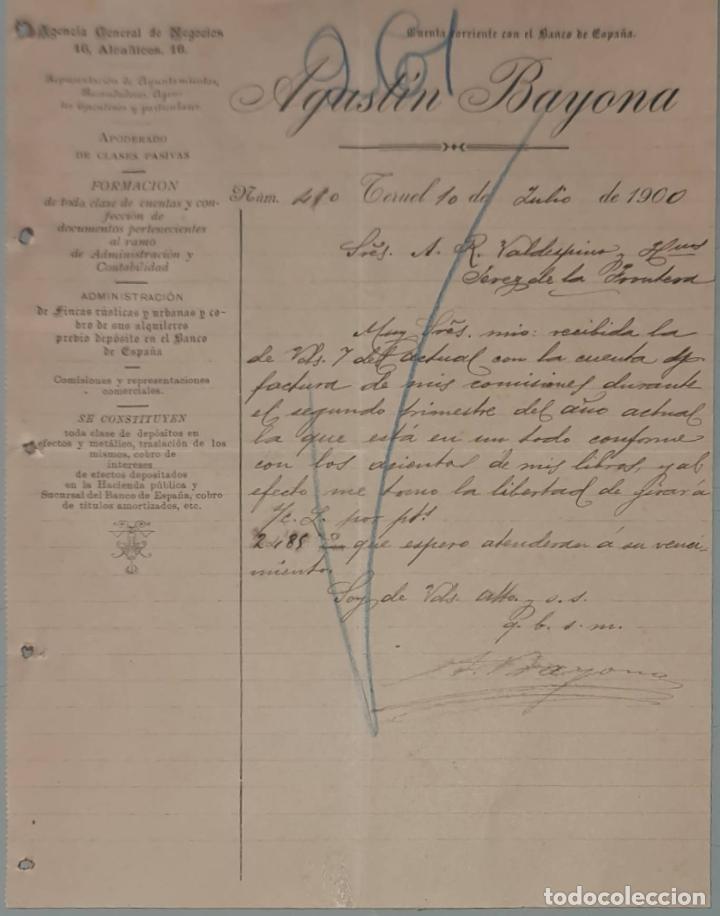 Agencia General de Negocios
16, Alcañices, 16.
Representación de Ayuntamientos,
tes Ejecutivos y particulares
APODERADO
DE CLASES PASIVAS
FORMACION
de toda clase de cuentas y con-
fección de
documentos pertenecientes
al ramo
de Administración y
Contabilidad
ADMINISTRACIÓN
de Fincas rústicas y urbanas y co-
bro de sus alquileres
previo depósito en el Banco
de España
Comisiones y representaciones
comerciales.
SE CONSTITUYEN
toda clase de depósitos en
efectos y metálico, traslación de los
mismos, cobro de
intereses
de efectos depositados
en la Hacienda pública y
Sucursal del Banco de España, cobro
de títulos amortizados, etc.
Cuenta corriente con el Banco de España.
Agustín Bayona
Núm. Teruel 10 de Julio de 1900
Sres. A. R. Valdespino y Hnos
Jerez de la Frontera
Muy Sres. mio: recibida la
de Vds. 7 del actual con la cuenta ó
factura de mis comisiones durante
el segundo trimestre del año actual
la que está en un todo conforme
con los asientos de mis libros, y al
efecto me tomo la libertad de girar á
s/c. L. por pts
2485 que espero atenderan á su venci-
miento.
Soy de Vds. atto. y s. s.
q. b. s. m.
A. Bayona
todocoleccion.net